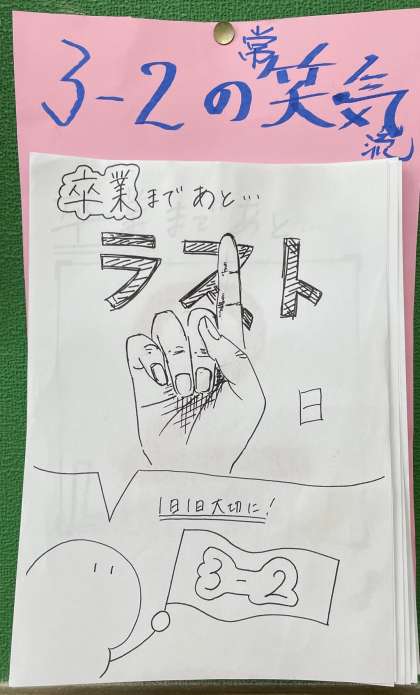 3-2の常笑気流
卒業まであと…
ラスト
日
1日1日大切に!
3-2